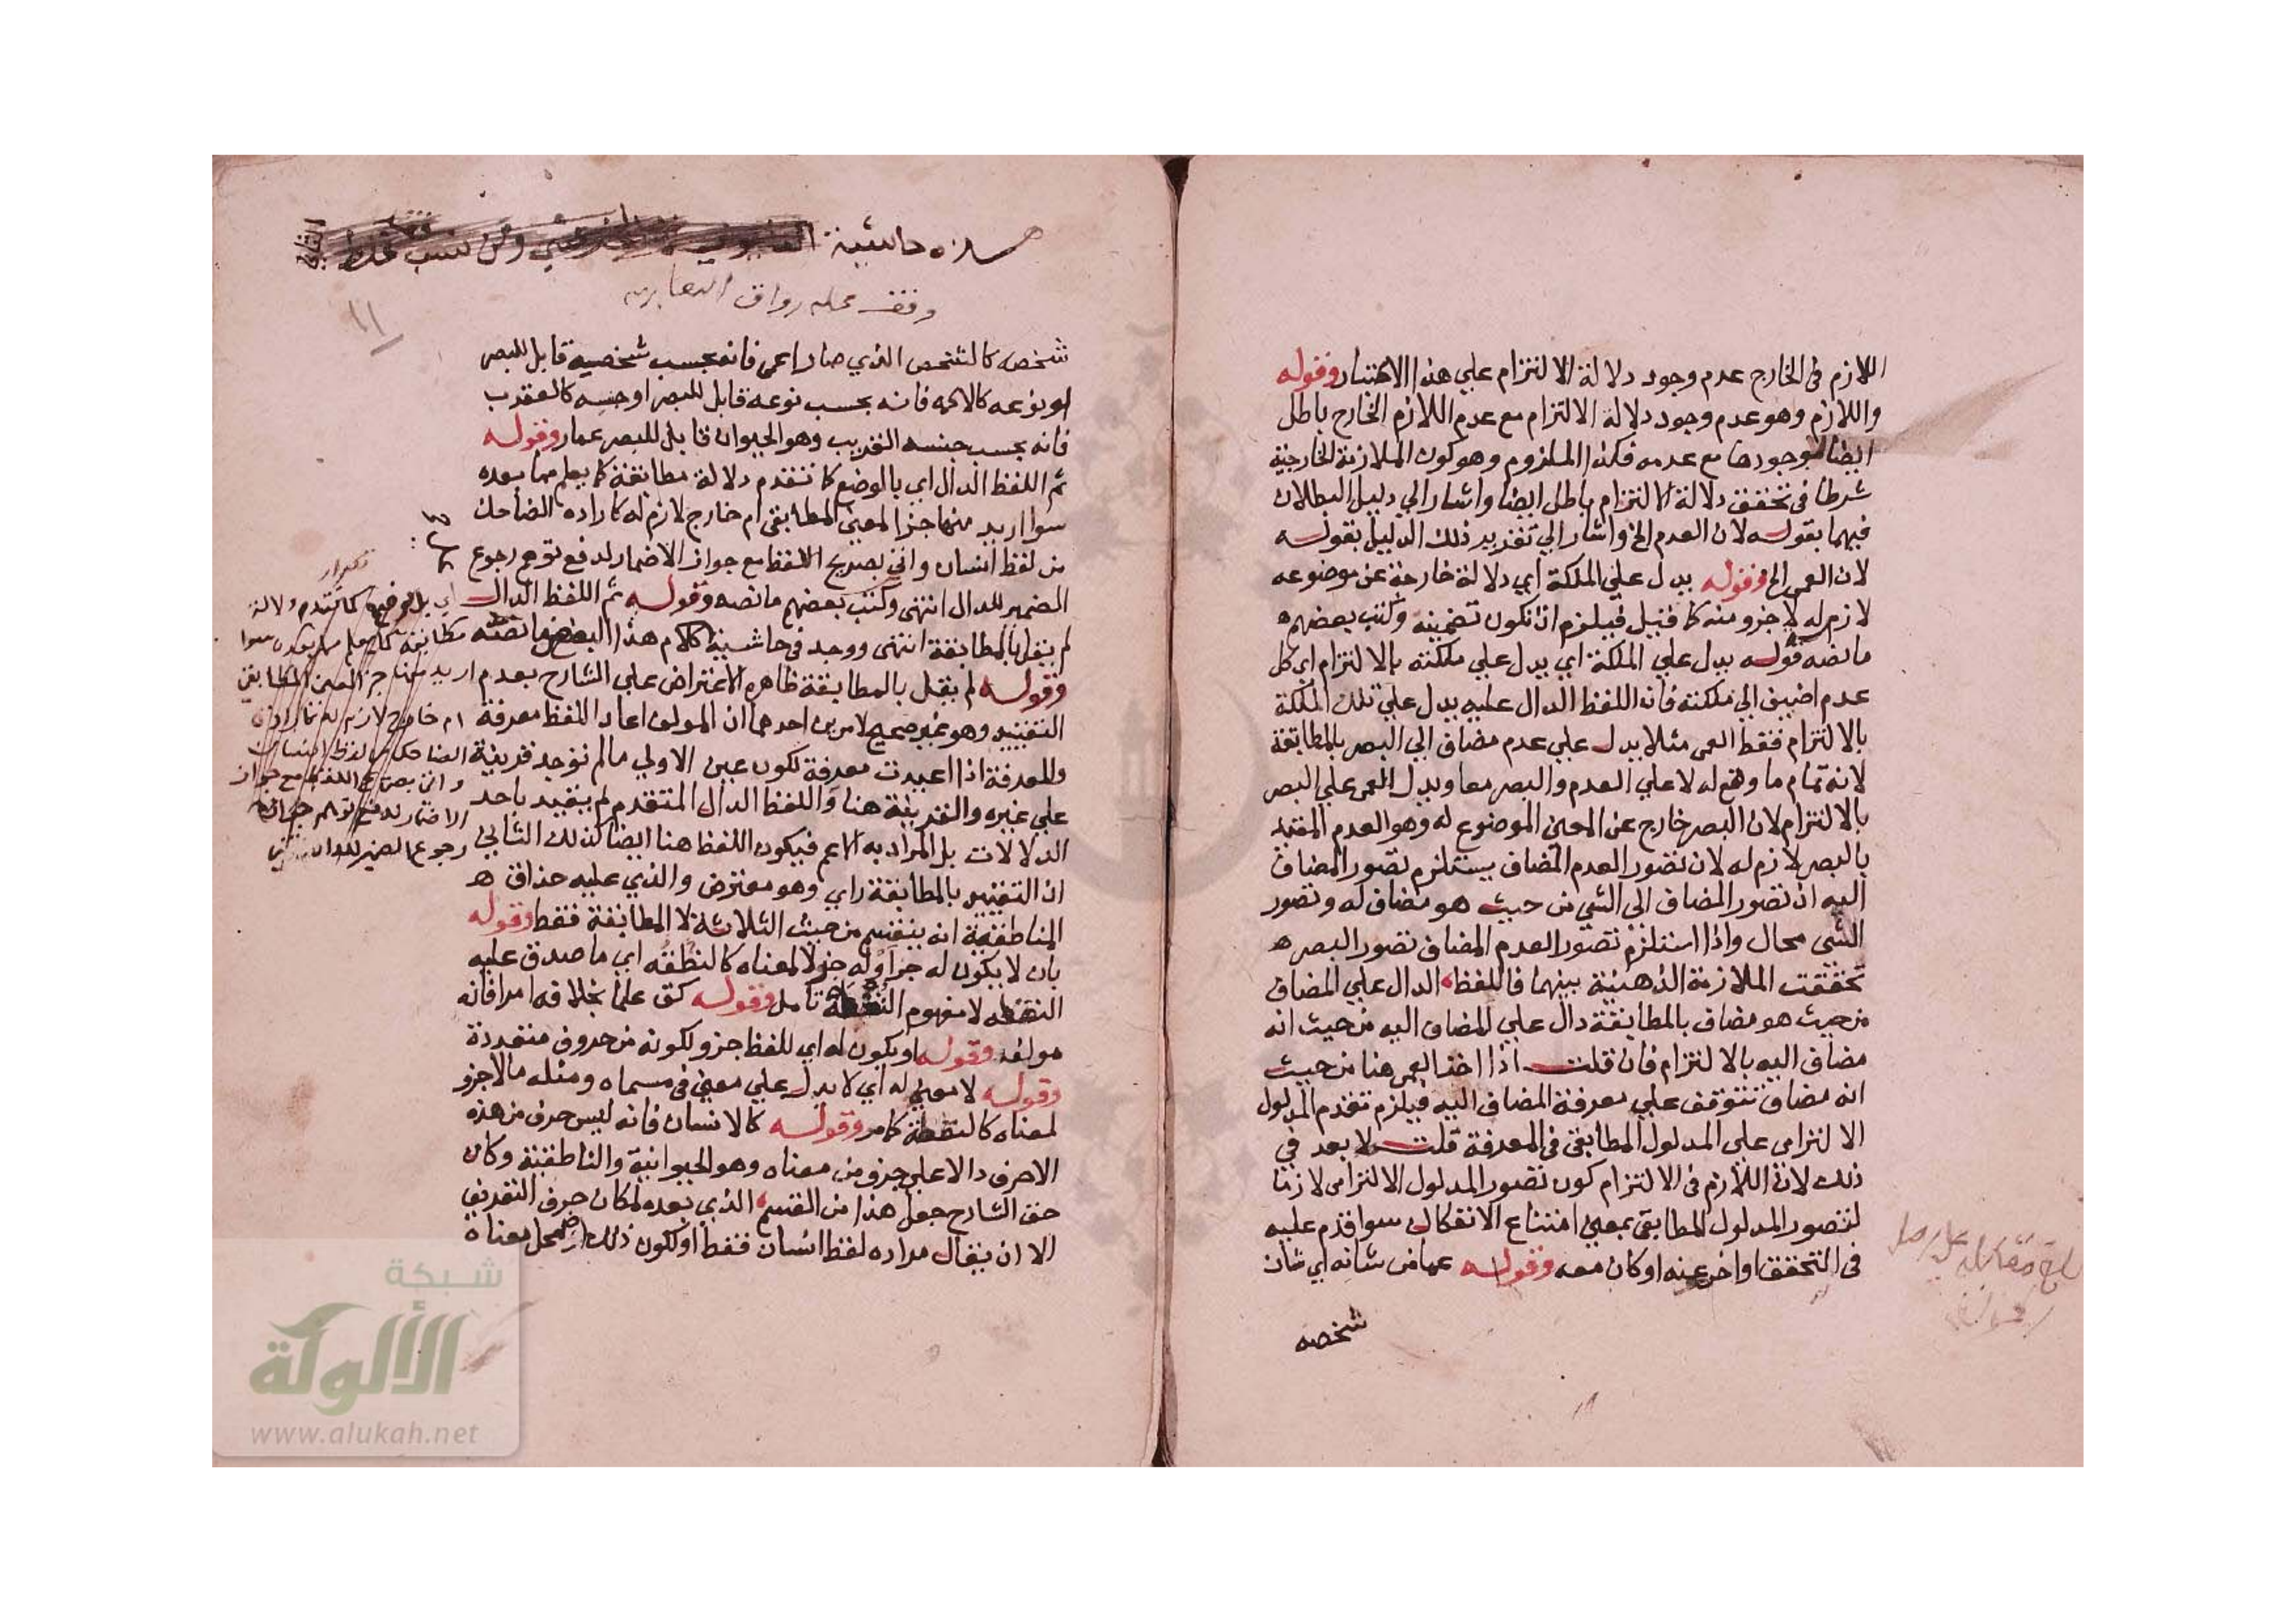 اللازم في الخارج عدم وجود دلالة الالتزام علي هذا الاعتبار وقوله
واللازم وهو عدم وجود دلالة الالتزام مع عدم اللازم الخارج باطل
ايضا لوجودها مع عدمه فكذا الملزوم وهو كون الملازمة الخارجية
شرطا في تحقق دلالة الالتزام باطل ايضا واشار الي دليل البطلان
فيهما بقوله لان العدم الخ واشار الي تقرير ذلك الدليل بقوله
لان العمي الخ وقوله يدل علي الملكة اي دلالة خارجة عن موضوعه
لازم له لا جزو منه كما قيل فيلزم ان تكون تضمينه وكتب بعضهم ه
ما نصه قوله يدل علي الملكة اي يدل علي ملكته بالالتزام اي كل
عدم اضيف الي ملكته فان اللفظ الدال عليه يدل علي تلك الملكة
بالالتزام فقط العمي مثلا يدل علي عدم مضاف الي البصر بالمطابقة
لانه تمام ما وضع له لا علي العدم والبصر معا ويدل العمي علي البصر
بالالتزام لان البصر خارج عن المعني الموضوع له وهو العدم المقيد
بالبصر لازم له لان تصور العدم المضاف يستلزم تصور المضاف
اليه اذ تصور المضاف الي الشي من حيث هو مضاف له وتصور
الشي محال واذا استلزم تصور العدم المضاف تصور البصر ه
تحققت الملازمة الذهنية بينهما فاللفظ الدال علي المضاف
من حيث هو مضاف بالمطابقة دال علي المضاف اليه من حيث انه
مضاف اليه بالالتزام فان قلت اذا اخذ العمي هنا من حيث
انه مضاف تتوقف علي معرفة المضاف اليه فيلزم تقدم المدلول
الالتزامي علي المدلول المطابقي في المعرفة قلت لا بعد في
ذلك لان اللازم في الالتزام كون تصور المدلول الالتزامي لازما
لتصور المدلول المطابقي بمعني امتناع الانفكاك سوا قدم عليه
في التحقق او اخر عنه او كان معه وقوله عما من شانه اي شان
شخصه
بلغ مقابلة علي اصل
هذه حاشية
وقف محله رواق
١١
شخصه كالشخص الذي صار اعمي فانه بحسب شخصية قابل للبصر
او نوعه كالاكمه فانه بحسب نوعه قابل للبصر او جنسه كالعقرب
فانه بحسب جنسه القريب وهو الحيوان قابل للبصر عمار وقوله
ثم اللفظ الدال اي بالوضع كما تقدم دلالة مطابقة كما يعلم مما بعده
سوا اريد منها جزا المعني المطابقي ام خارج لازم له كارادة الضاحك
من لفظ انسان واتي بصريح اللفظ مع جواز الاضمار لدفع توهم رجوع
الضمير للدال انتهي وكتب بعضهم ما نصه وقوله ثم اللفظ الدال
لم يقل بالمطابقة انتهي ووجد في حاشية كلام هذا البعض ما نصه
وقوله لم يقل بالمطابقة ظاهره الاعتراض علي الشارح بعدم
التقييد وهو غير صحيح لامرين احدهما ان المولف اعاد اللفظ معرفة
والمعرفة اذا اعيدت معرفة تكون عين الاولي ما لم توجد قرينة
علي غيره والقرينة هنا واللفظ الدال المتقدم لم يقيد باحد
الدلالات بل المراد به الاعم فيكون اللفظ هنا ايضا كذلك الثاني
ان التقييد بالمطابقة راي وهو معترض والذي عليه حذاق ه
المناطقة انه ينقسم من حيث الثلاثة لا المطابقة فقط وقوله
بان لا يكون له جزا وله جزو لا لمعناه كالنقطة اي ما صدق عليه
النقطه لا مفهوم النقطة تامل وقوله كق علما بخلافه امرا فانه
مولف وقوله او يكون له اي للفظ جزو لكونه من حروف متعددة
وقوله لا معني له اي لا يدل علي معني في مسماه ومثله ما لا جزو
لمعناه كالنقطة كما مر وقوله كالانسان فانه ليس حرف من هذه
الاحرف دالا علي جزو من معناه وهو الحيوانية والناطقية وكان
حق الشارح جعل هذا من القسم الذي بعده لمكان حرف التعريف
الا ان يقال مراده لفظ انسان فقط او لكون ذلك اضمحل معناه
تكرار
اي بالوضع كما تقدم دلالة
مطابقة كما يعلم مما بعده سوا
اريد منها جز المعني المطابقي
ام خارج لازم له كارادة
الضاحك من لفظ انسان
واتي بصريح اللفظ مع جواز
الاضمار لدفع توهم
رجوع الضمير للدال
شبكة
الألوكة
www.alukah.net